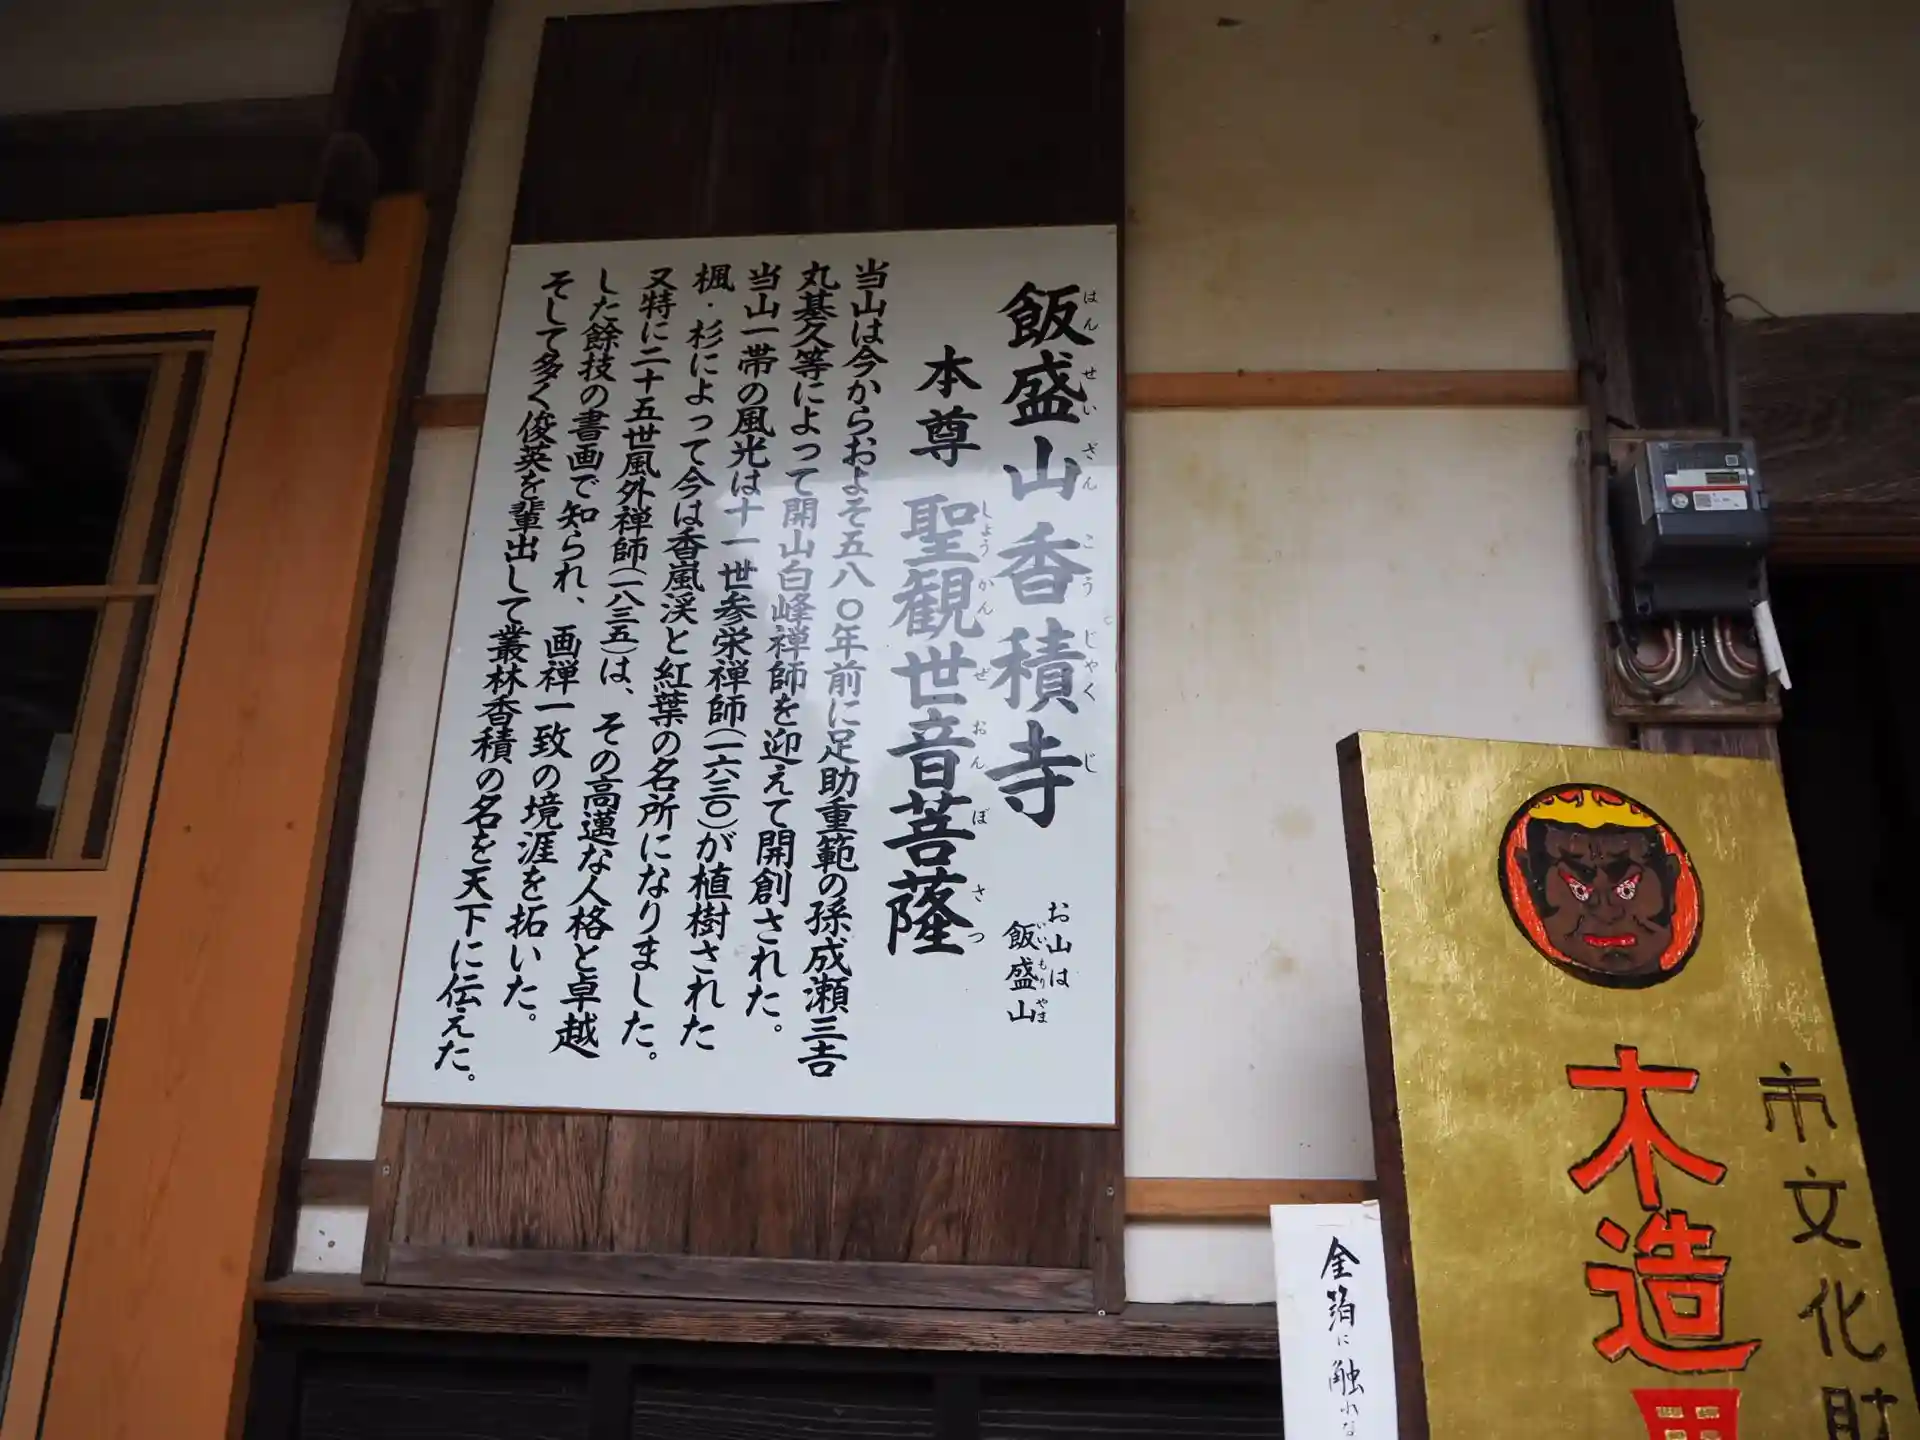 飯盛山香積寺
はんせいざんこうじゃくじ
お山は
飯盛山
いいもりやま
本尊 聖観世音菩薩
しょうかんぜおんぼさつ
当山は今からおよそ五八〇年前に足助重範の孫成瀬三吉
丸基久等によって開山白峰禅師を迎えて開創された。
当山一帯の風光は十一世参栄禅師(一六三〇)が植樹された
楓・杉によって今は香嵐渓と紅葉の名所になりました。
又特に二十五世風外禅師(一八三五)は、その高邁な人格と卓越
した餘技の書画で知られ、画禅一致の境涯を拓いた。
そして多く俊英を輩出して叢林香積の名を天下に伝えた。
市文化財
木造
金箔に触れな